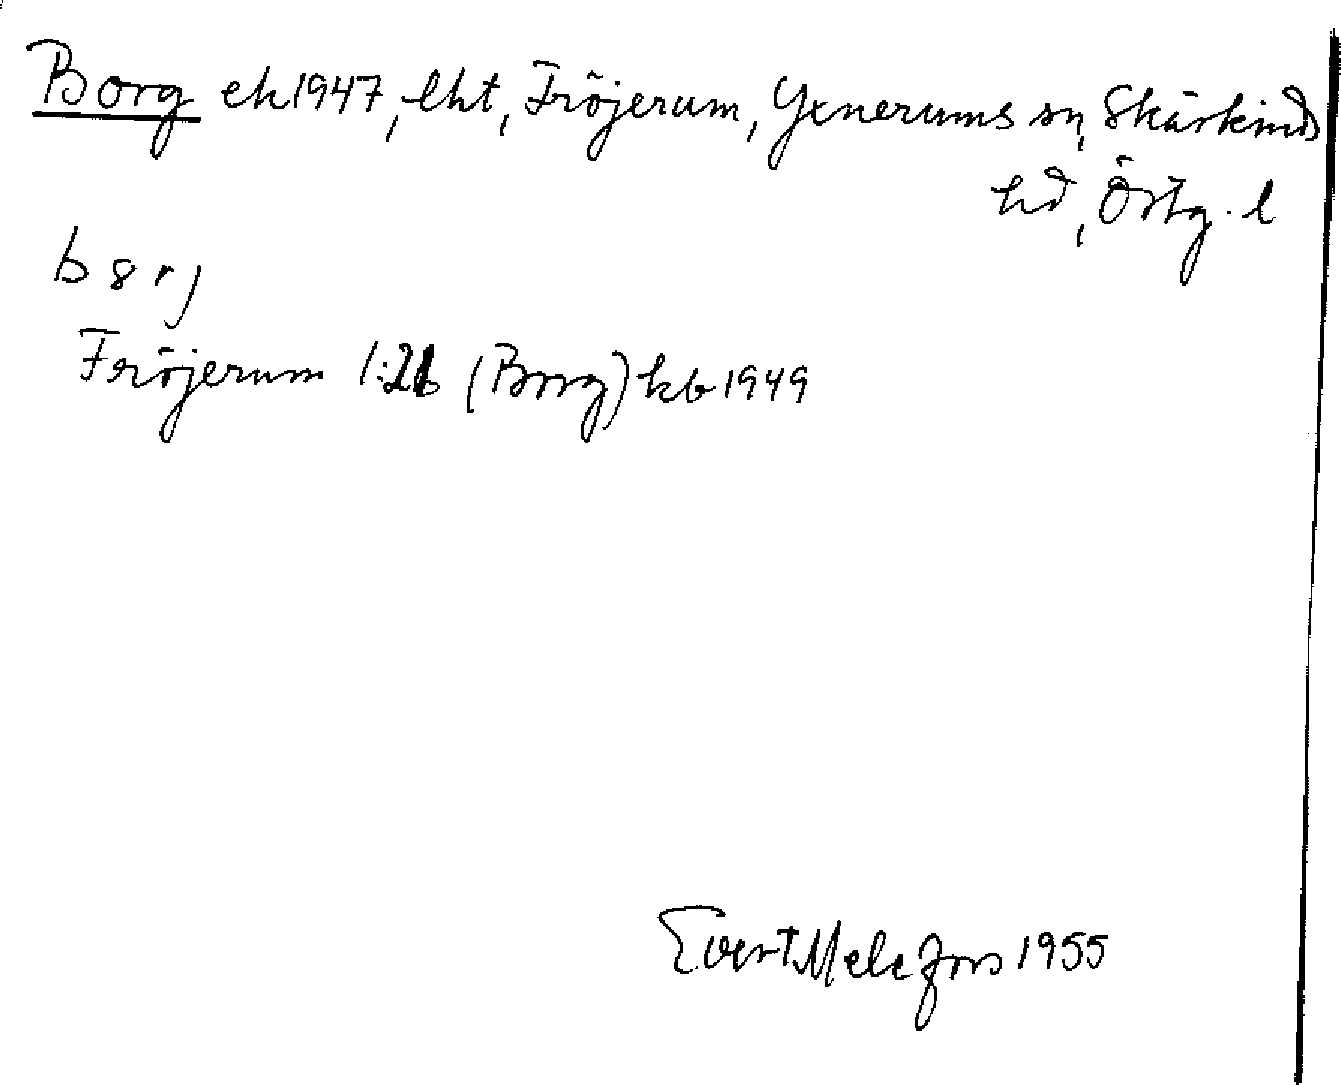 Borg ek 1947, lht, Fröjerum, Yxnerums sn, Skärkinds
hd, Östg. l
b 8 r j
Fröjerum 1:26 (Borg) kb 1949
Evert Melefors 1955